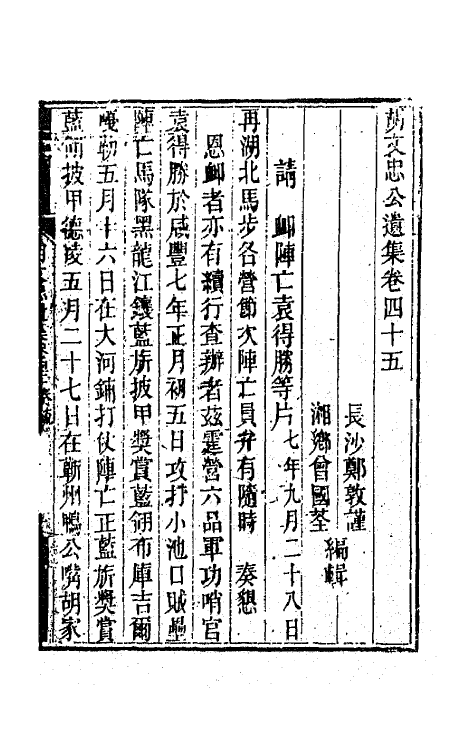 胡文忠公遺集卷四十五
長沙鄭敦謹
湘鄉曾國荃
編輯
請 卹陣亡袁得勝等片 七年九月二十八日
再湖北馬步各營節次陣亡員弁有隨時 奏懇
恩卹者亦有續行查辦者茲霆營六品軍功哨官
袁得勝於咸豐七年正月初五日攻打小池口賊壘
陣亡馬隊黑龍江鑲藍旂披甲獎賞藍翎布庫吉爾
嘎勒五月十六日在大河鋪打仗陣亡正藍旂獎賞
藍翎披甲德凌五月二十七日在蘄州鴨公嘴胡家